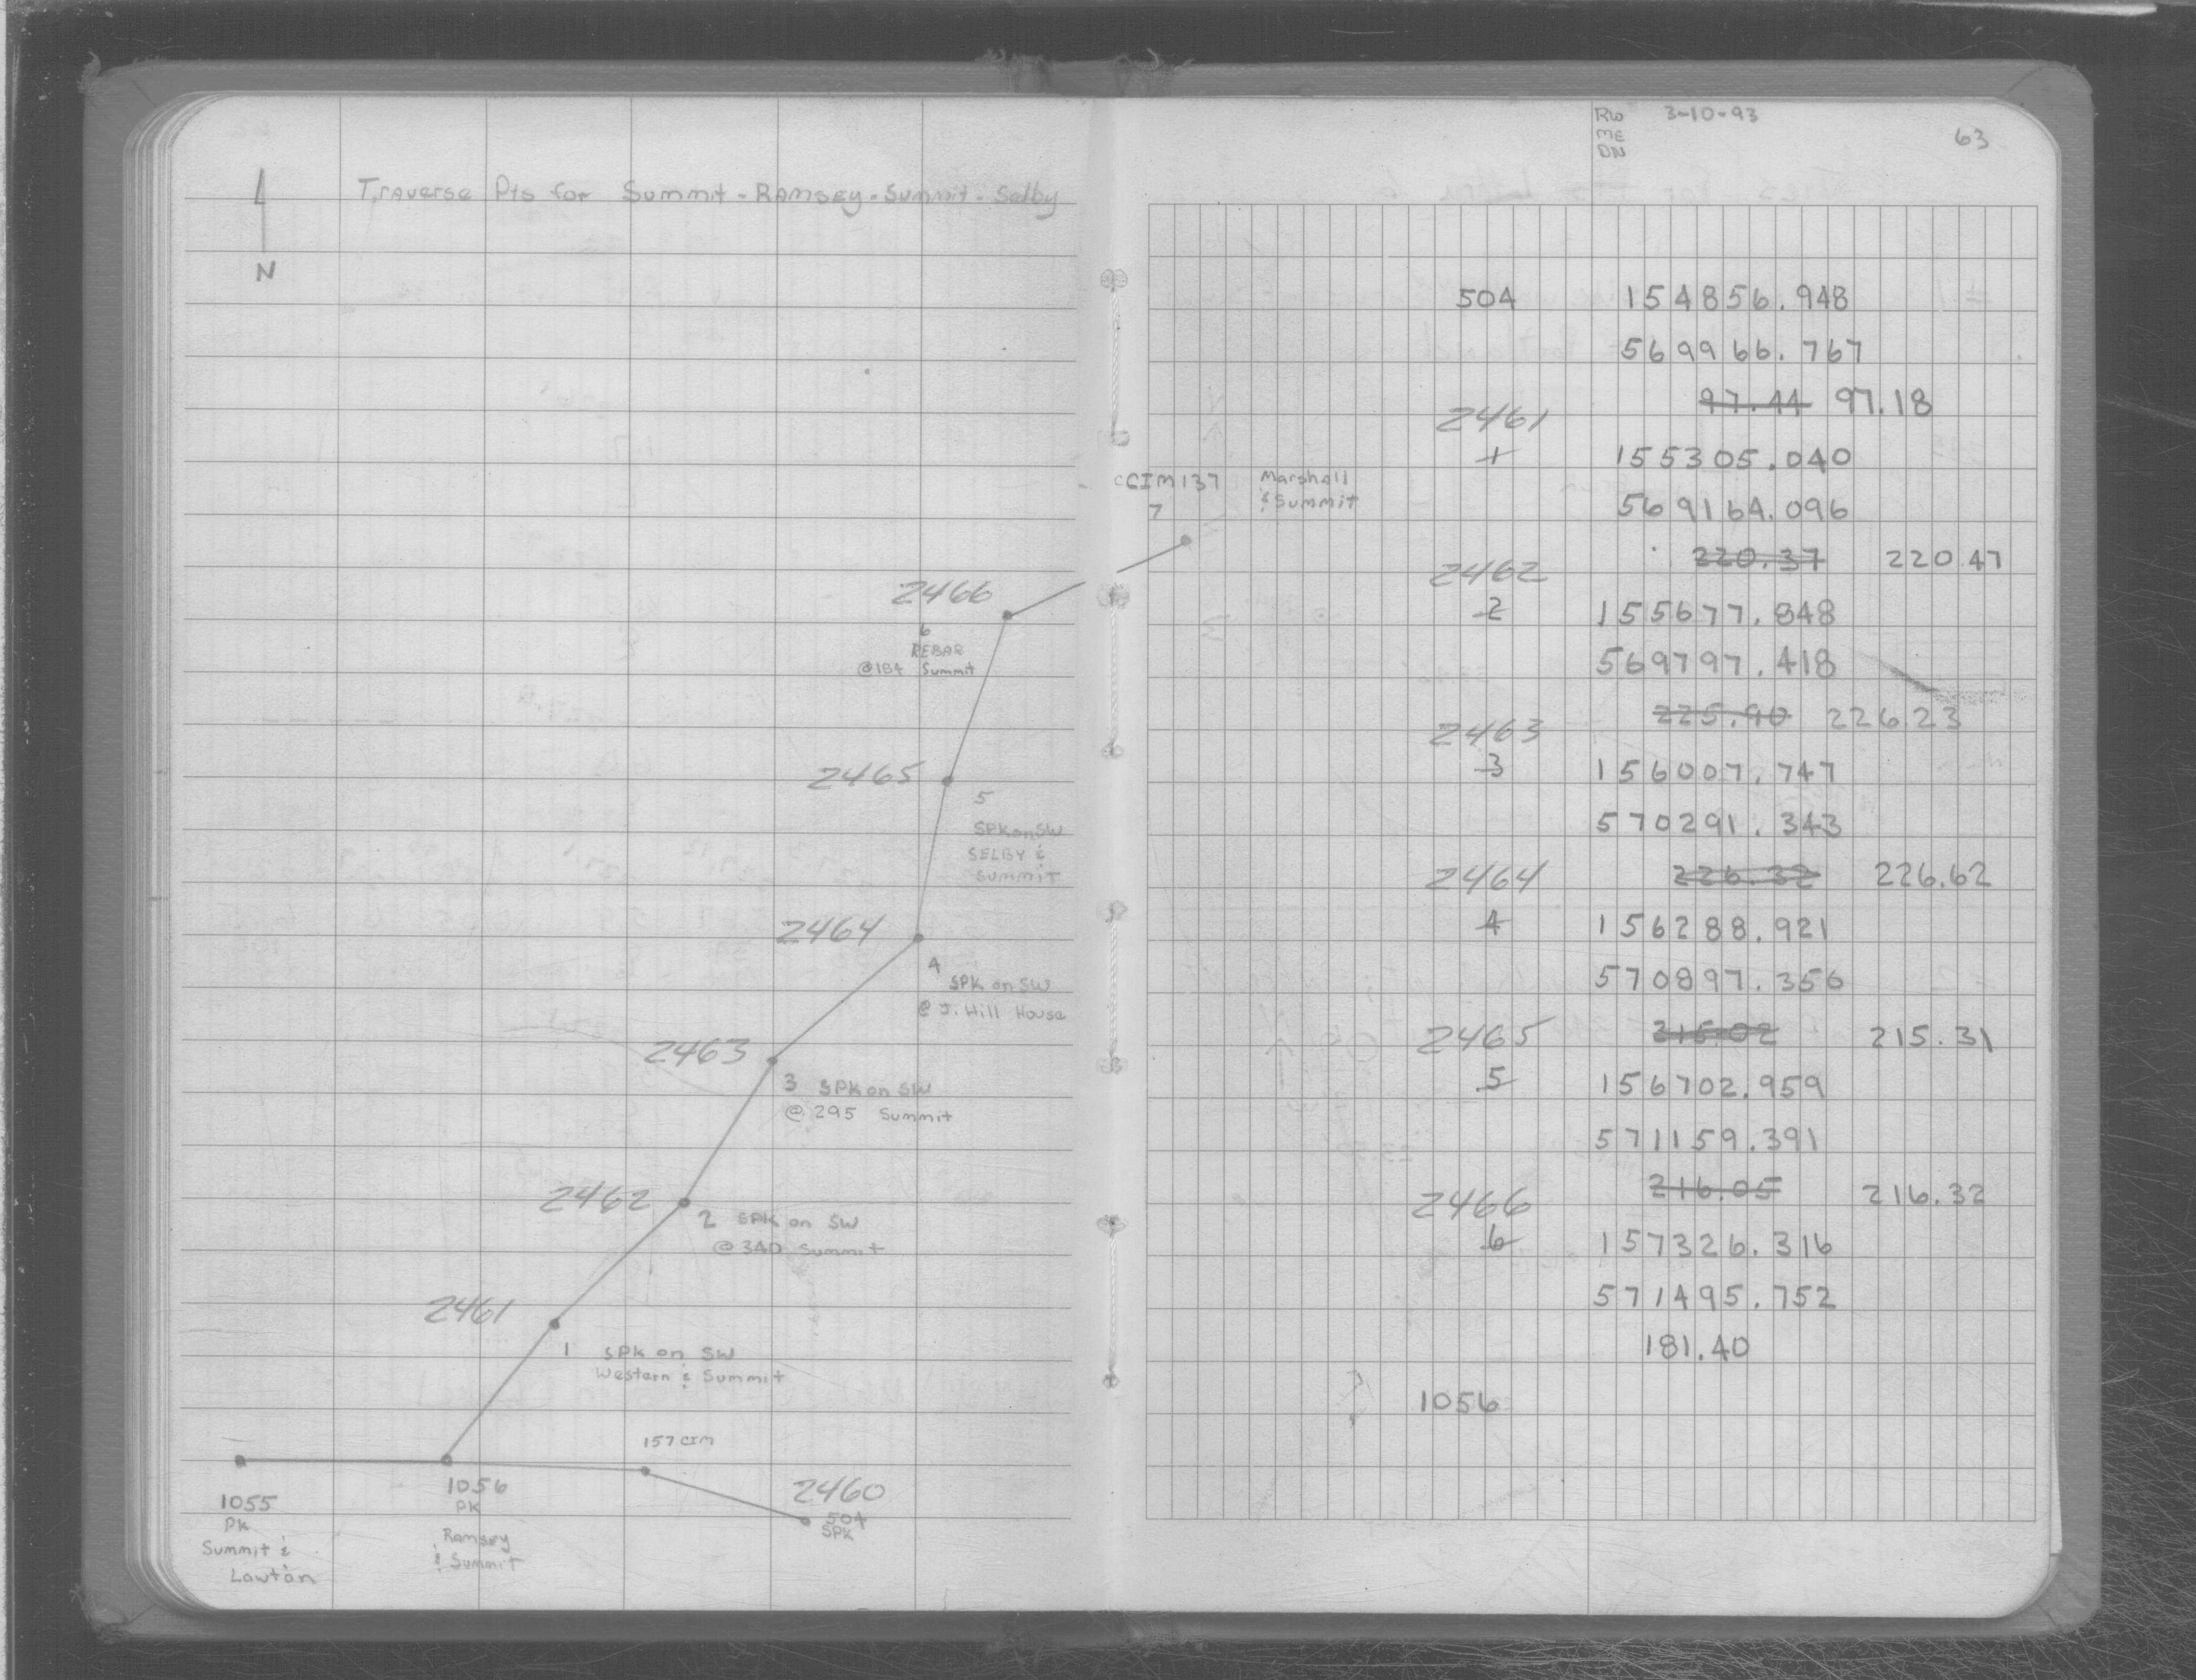 Traverse Pts for Summit - Ramsey - Summit - Selby
N
CIM 137
7
Marshall
& Summit
2466
6
REBAR
@184 Summit
2465
5
SPK on SW
SELBY &
Summit
2464
4
SPK on SW
@ J. Hill House
2463
3 SPK on SW
@ 295 Summit
2462
2 SPK on SW
@ 340 Summit
2461
1 SPK on SW
Western & Summit
157 CIM
2460
504
SPK
1056
PK
Ramsey
& Summit
1055
PK
Summit &
Lawton
RW 3-10-93
ME
DN
63
504 154856.948
569966.767
97.44 97.18
2461
1 155305.040
569164.096
220.37 220.47
2462
2 155677.848
569797.418
225.90 226.23
2463
3 156007.747
570291.343
226.32 226.62
2464
4 156288.921
570897.356
215.31
2465
5 156702.959
571159.391
216.05 216.32
2466
6 157326.316
571495.752
181.40
1056